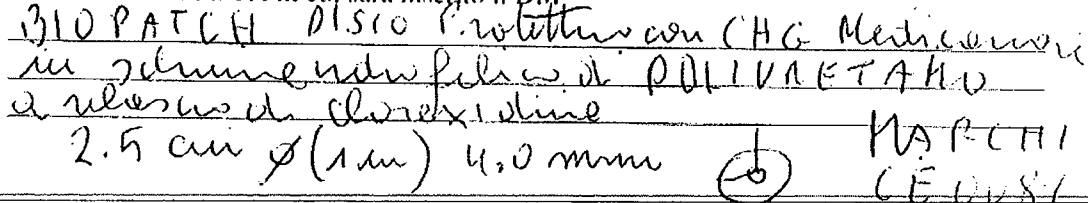 BIOPATCH DISCO Protettivo con CHG Medicazioni
in schiuma idrofilica di POLIURETANO
a rilascio di clorexidine
2.5 cm ø (1 in) 4.0 mm